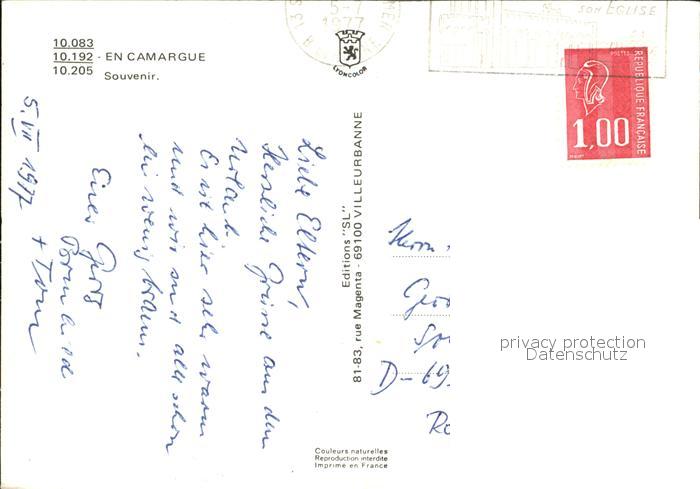 10.083
10.192 - EN CAMARGUE
10.205 Souvenir.
5-7
1977
LYONCOLOR
SON EGLISE
POSTES
REPUBLIQUE FRANÇAISE
1,00
5. VII 1977
Liebe Eltern,
Herzliche Grüsse aus dem
Urlaub.
Es ist hier sehr warm
und wir sind alle schon
ein wenig braun.
Eure
+ Tom
Editions "SL"
81-83, rue Magenta - 69100 VILLEURBANNE
Herrn
D-69
privacy protection
Datenschutz
Couleurs naturelles
Reproduction interdite
Imprimé en France